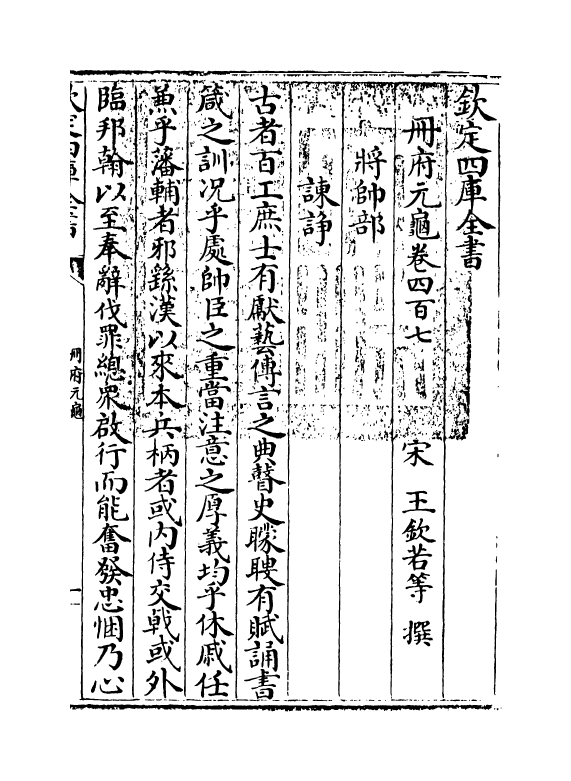 欽定四庫全書
冊府元龜卷四百七 宋 王欽若等 撰
將帥部
諫諍
古者百工庶士有獻藝傳言之典瞽史矇瞍有賦誦書
箴之訓况乎處帥臣之重當注意之厚義均乎休戚任
兼乎藩輔者邪繇漢以來本兵柄者或内侍交戟或外
臨邦翰以至奉辭伐罪總衆啟行而能奮發忠悃乃心
欽定四庫全書
冊府元龜
一